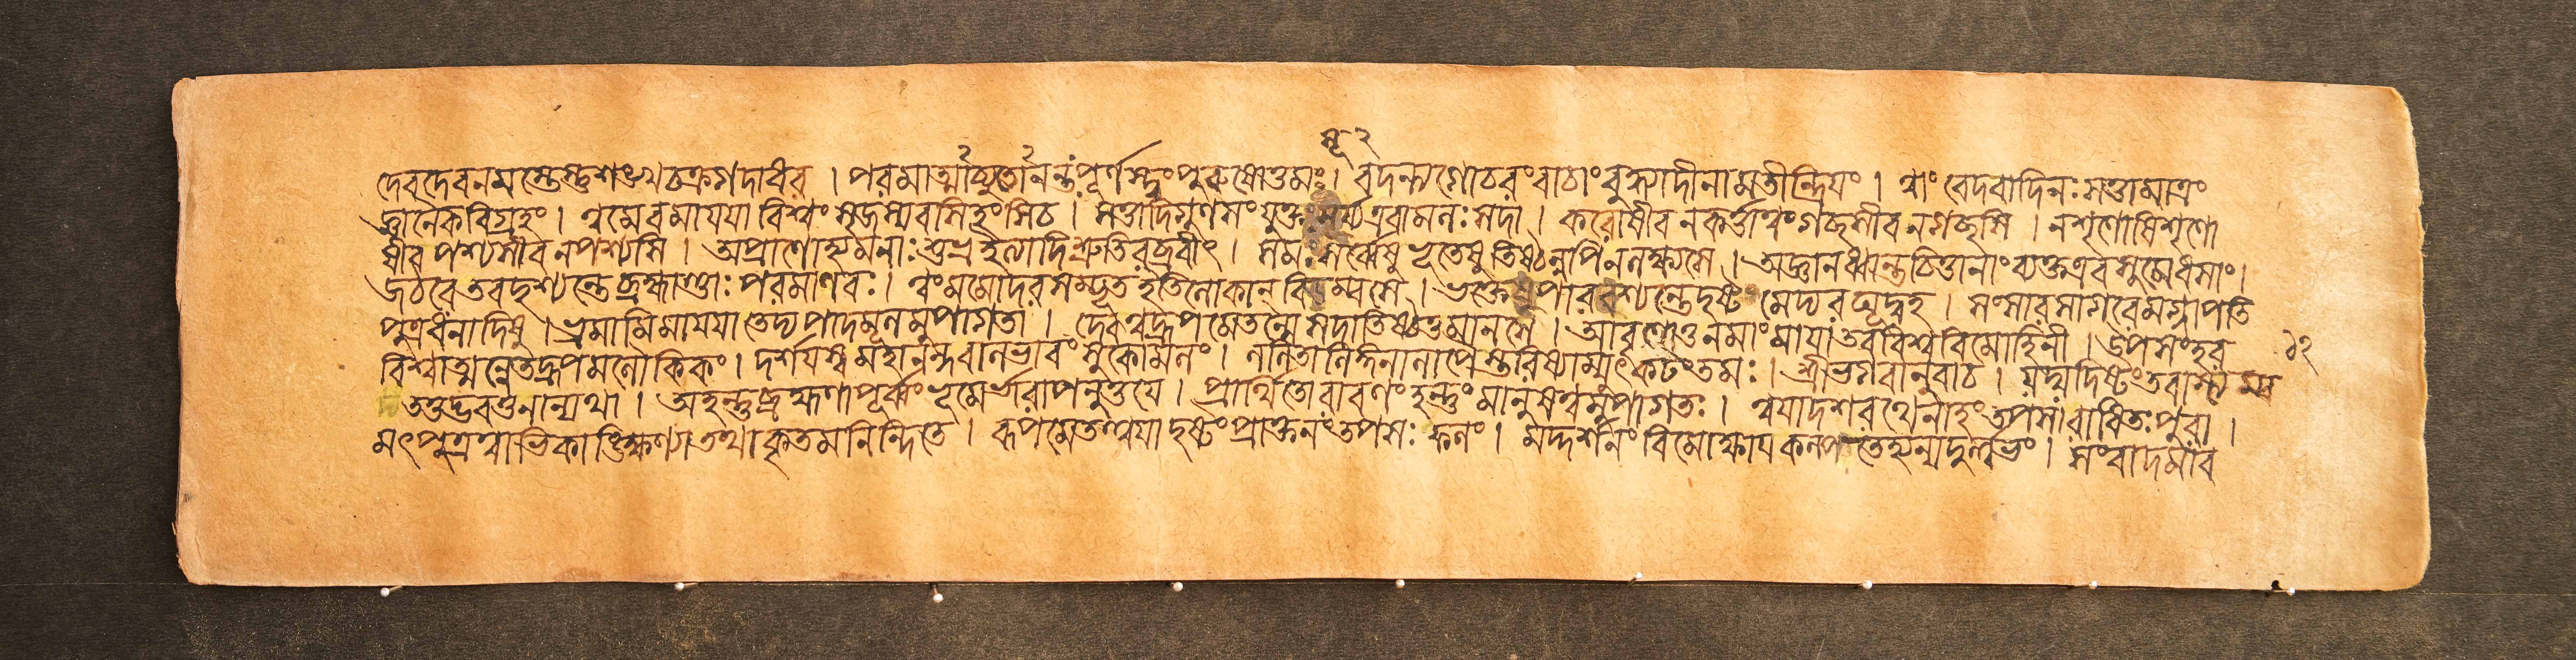 ২ ২ সৃ-২
দেবদেবনমস্তেস্তুশঙ্খচক্রগদাধর । পরমাত্মাচ্যুতোনন্তংপূর্ণস্ত্বংপুরুষোত্তমঃ । বদন্ত্যগোচরংবাচাংবুদ্ধ্যাদীনামতীন্দ্রিয়ং । ত্বাংবেদবাদিনঃসত্তামাত্রং
জ্ঞানৈকবিগ্রহং । ত্বমেবমায়য়াবিশ্বংসৃজস্যেবাসিহংসিচ । সত্তাদিগুণসংযুক্ত এবামলঃসদা । করোষীবনকর্ত্তাত্বংগচ্ছসীবনগচ্ছসি । নশৃণোষিশৃণো
ষীবপশ্যসীবনপশ্যসি । অপ্রাণোহ্যমনাঃশুভ্রইত্যাদিশ্রুতিরব্রবীৎ । সমঃসর্ব্বেষুভূতেষুতিষ্ঠন্নপিনলক্ষ্যসে । অজ্ঞানধ্বান্তচিত্তানাংব্যক্তএবসুমেধসাং ।
জঠরেতবদৃশ্যন্তেব্রহ্মাণ্ডাঃপরমাণবঃ । ত্বংমমোদরসম্ভূতইতিলোকান্বিডম্বসে । ভক্তেষুপারবশ্যন্তেদৃষ্টংমেদ্যরঘূদ্বহ । সংসারসাগরেমগ্নাপতি
পুত্রধনাদিষু । ভ্রমামিমায়য়াতেদ্যপাদমূলমুপাগতা । দেবত্বদ্রূপমেতন্মেসদাতিষ্ঠতুমানসে । আবৃণোতুনমাংমায়াতববিশ্ববিমোহিনী । উপসংহর
বিশ্বাত্মন্নেতদ্রূপমলৌকিকং । দর্শয়স্বমহানন্দবালভাবংসুকোমলং । ললিতালিঙ্গনালাপৈস্তরিষ্যাম্যুৎকটংতমঃ । শ্রীভগবানুবাচ । যদ্যদিষ্টংতবাস্ত্যম্ব ১২
তত্তদ্ভবতুনান্যথা । অহন্তুব্রহ্মণাপূর্ব্বংভূমের্ভারাপনুত্তয়ে । প্রার্থিতোরাবণংহন্তুংমানুষত্বমুপাগতঃ । ত্বয়াদশরথেনাহংতপসারাধিতঃপুরা ।
মৎপুত্রত্বাভিকাঙ্ক্ষিণ্যাতথাকৃতমনিন্দিতে । রূপমেতত্ত্বয়াদৃষ্টংপ্রাক্তনংতপসঃফলং । মদ্দর্শনংবিমোক্ষায়কল্পতেহ্যন্যদুর্ল্লভং । সংবাদমাব